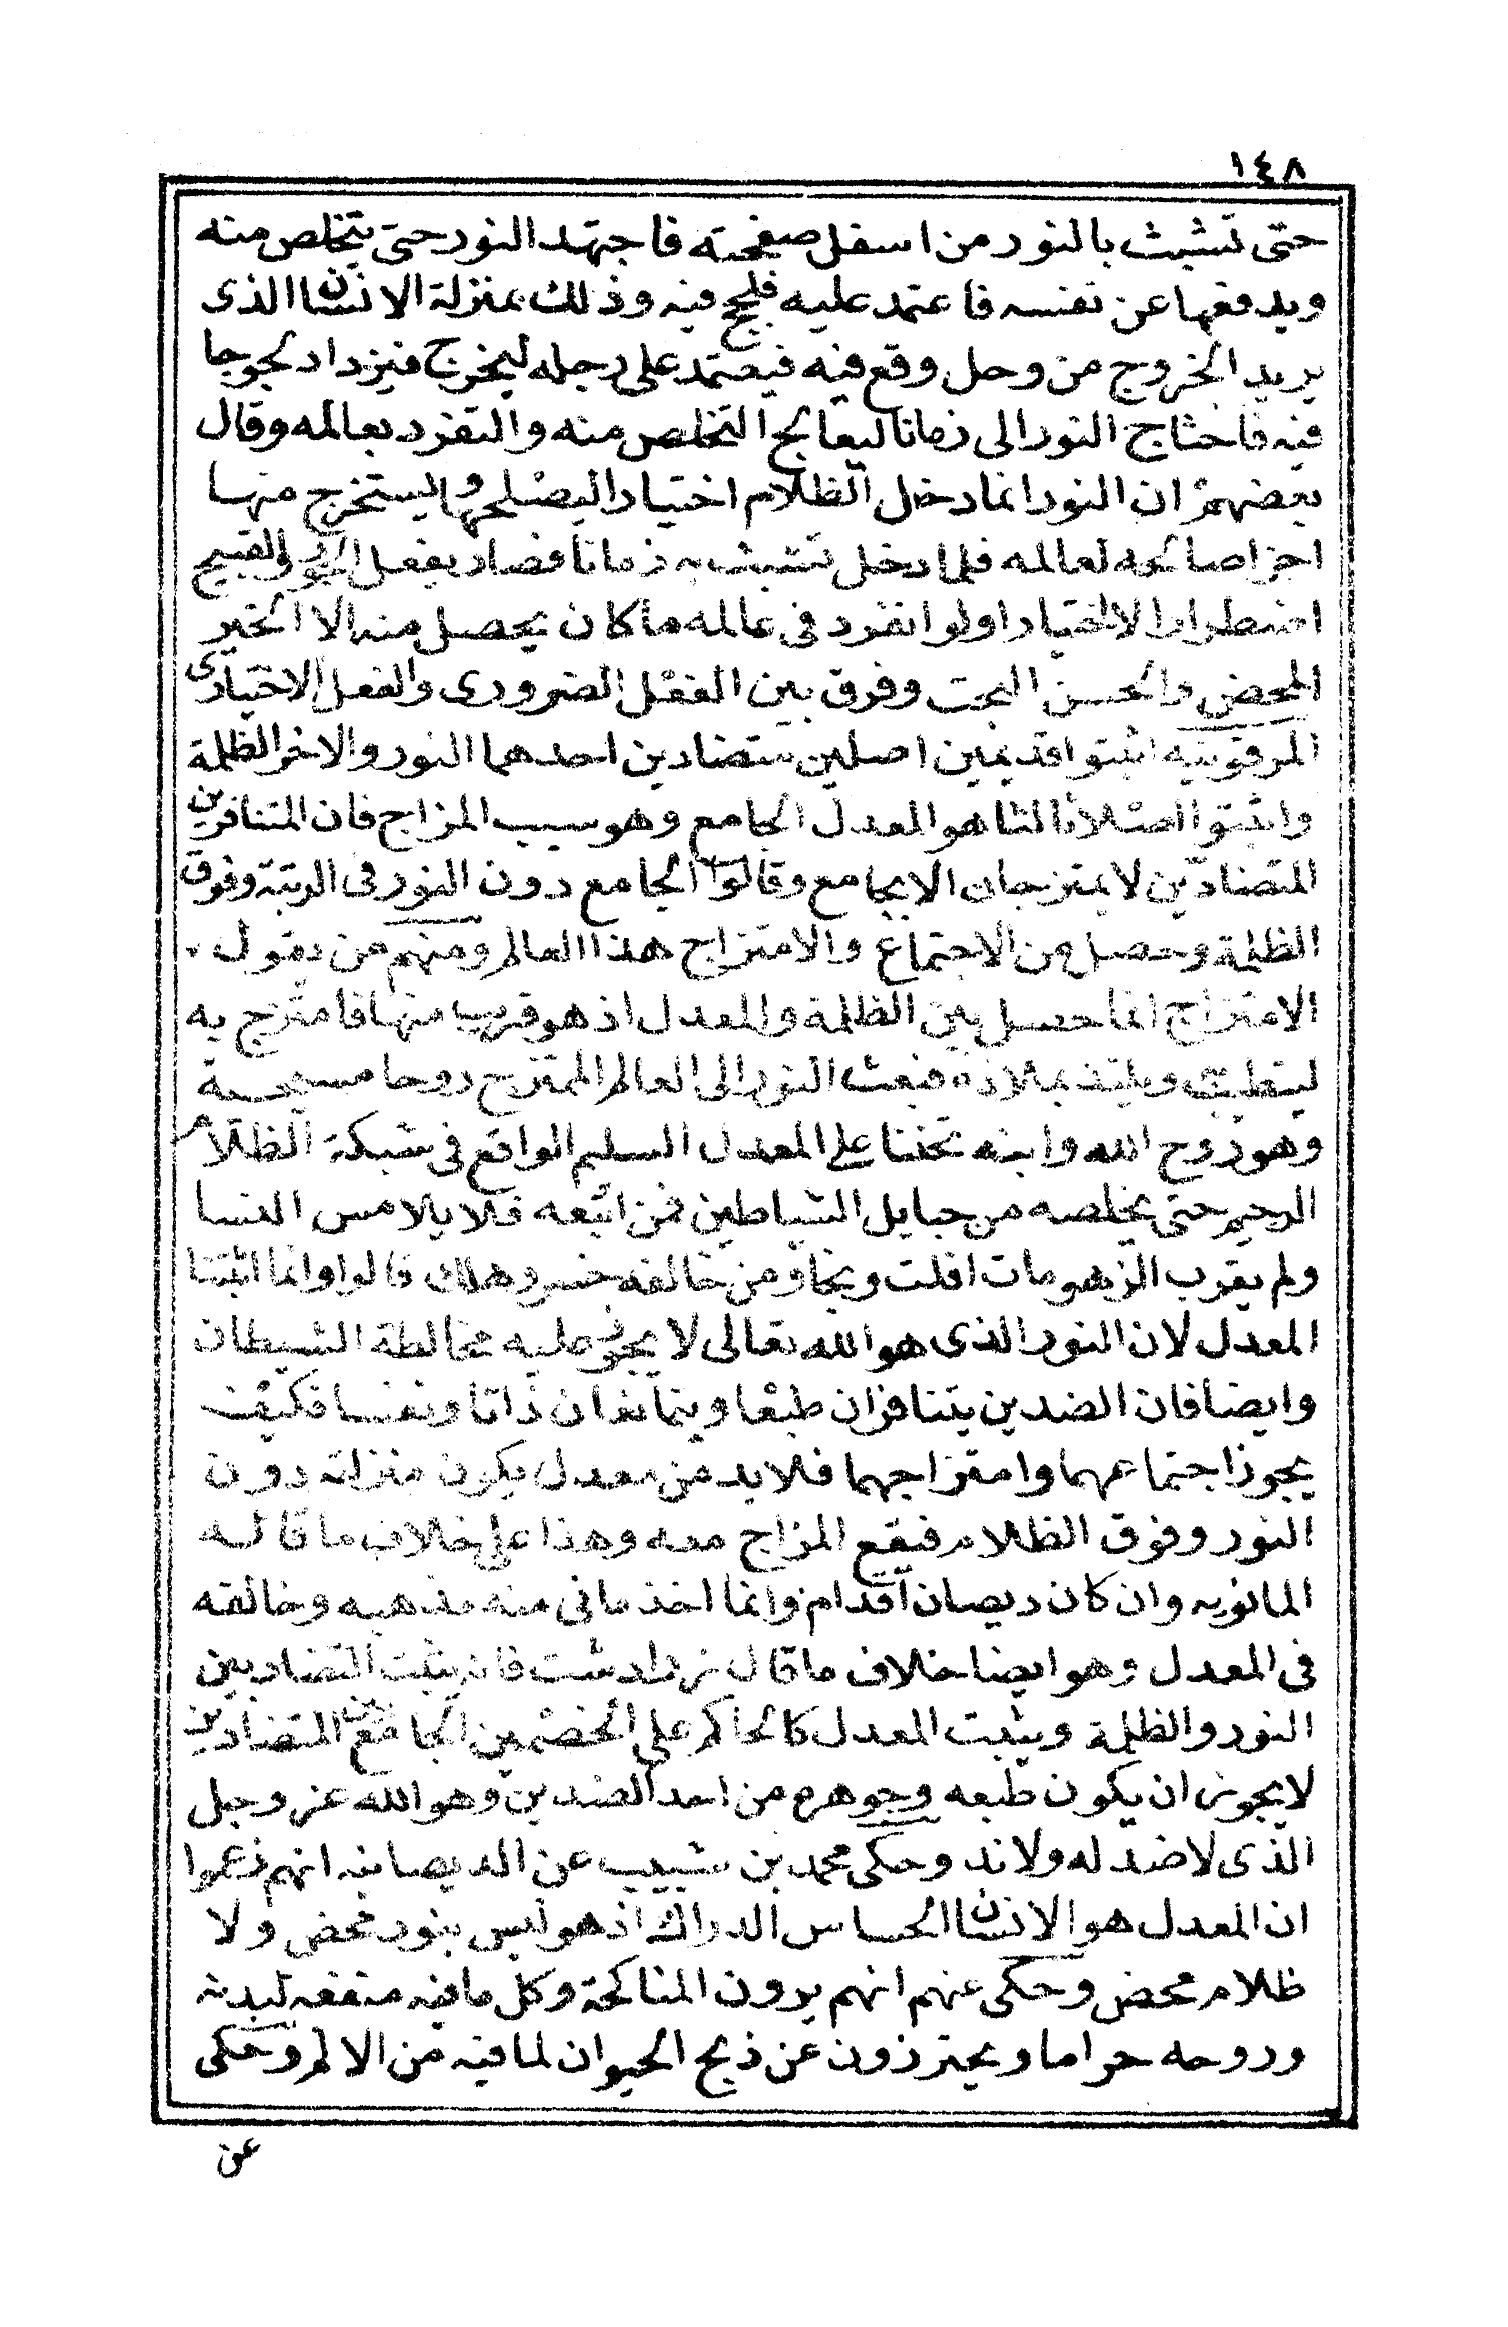 ١٤٨
حتى تشبث بالنور من اسفل صفحته فاجتهد النور حتى يتخلص منه
ويدفعها عن نفسه فاعتمد عليه فلجج فيه وذلك بمنزلة الانسان الذى
يريد الخروج من وحل وقع فيه فيعتمد على رجله ليخرج فيزداد لجوجا
فيه فاحتاج النور الى زمانا ليعالج التخلص منه والتفرد بعالمه وقال
بعضهم ان النور انما دخل الظلام اختيارا ليصلحها وليستخرج منها
اجزا صالحه لعالمه فلما دخل تشبثت به زمانا فصار يفعل الجور والقبيح
اضطرارا لا اختيارا ولو انفرد فى عالمه ما كان يحصل منه الا الخير
المحض والحسن البحت وفرق بين الفعل الضرورى والفعل الاختيارى
المرقونيه اثبتوا قديمين اصلين متضادين احدهما النور والاخر الظلمة
واثبتوا اصلا ثالثا هو المعدل الجامع وهو سبب المزاج فان المتنافرين
المتضادين لا يمتزجان الا بجامع وقالوا الجامع دون النور فى الرتبة وفوق
الظلمة وحصل من الاجتماع والامتزاج هذا العالم ومنهم من يقول
الامتزاج انما حصل بين الظلمة والمعدل اذ هو قريب منها فامتزج به
ليتطيب ويلتذ بملاذه فبعث النور الى العالم الممتزج روحا مسيحية
وهو روح الله وابنه تحننا على المعدل السليم الواقع فى شبكة الظلام
الرجيم حتى يخلصه من حبايل الشياطين فمن اتبعه فلا يلامس النسا
ولم يقرب الزهومات افلت ونجا ومن خالفه خسر وهلك قالوا وانما اثبتنا
المعدل لان النور الذى هو الله تعالى لا يجوز عليه مخالطة الشيطان
وايضا فان الضدين يتنافران طبعا ويتمانعان ذاتا ونفسا فكيف
يجوز اجتماعهما وامتزاجهما فلا بد من معدل يكون منزلته دون
النور وفوق الظلام فيقع المزاج معه وهذا على خلاف ما قالـه
المانويه وان كان ديصان اقدام وانما اخذ مانى منه مذهبه وخالفه
فى المعدل وهو ايضا خلاف ما قال زرادشت فانه يثبت التضاد بين
النور والظلمة ويثبت المعدل كالحاكم على الخصمين الجامع بين المتضادين
لا يجوز ان يكون طبعه وجوهره من احد الضدين وهو الله عز وجل
الذى لا ضد له ولا ند وحكى محمد بن شبيب عن الديصانيه انهم زعموا
ان المعدل هو الانسان الحساس الدراك اذ هو ليس بنور محض ولا
ظلام محض وحكى عنهم انهم يرون المناكحة وكل ما فيه منفعه لبدنه
وروحه حراما ويحترزون عن ذبح الحيوان لما فيه من الالم وحكى
عن